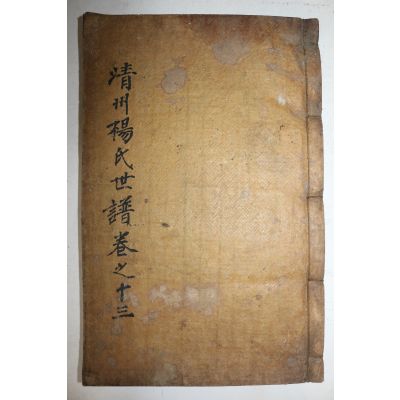 清州楊氏世譜卷之十三